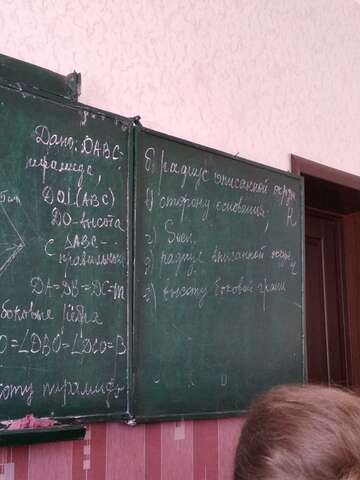 Дано: DABC-
пирамида,
DO⊥(ABC)
DO-высота
с ΔABC-
правильный
DA=DB=DC=m
боковые рёбра
O=∠DBO=∠DCO=β
оту пирамиды
б) радиус описанной окруж
R
в) сторону основания,
г) Sосн.
д) радиус вписанной
е) высоту боковой грани